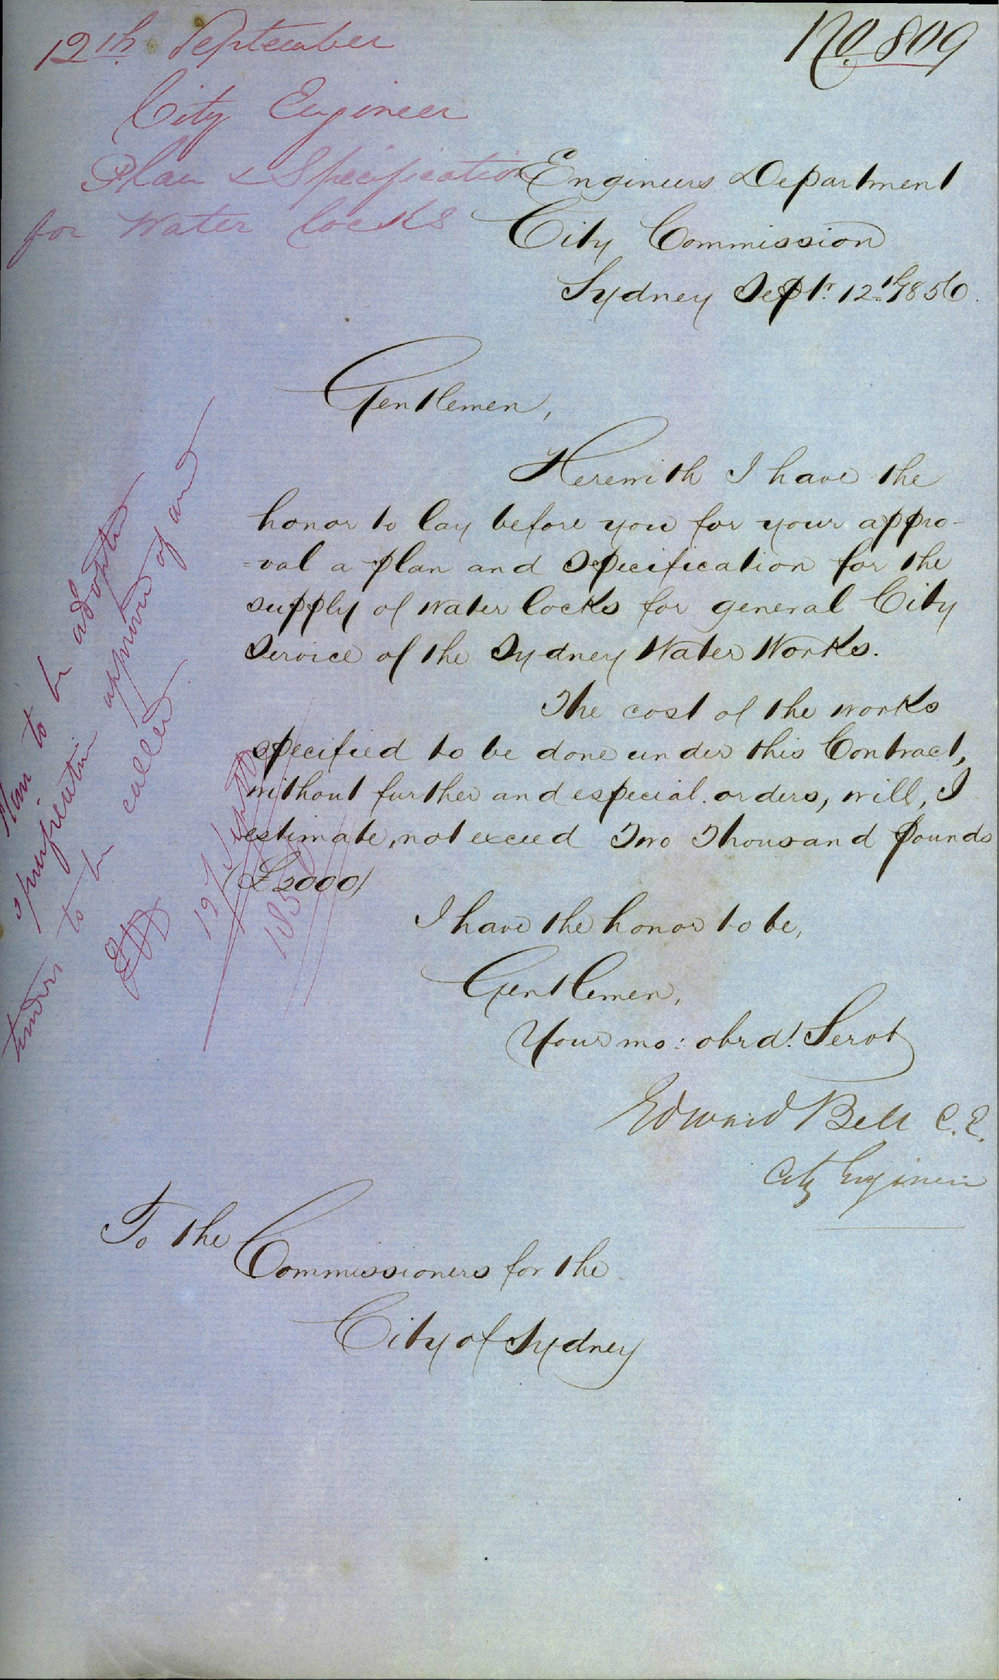 No. 809
12th September
City Engineer
Plan & Specification
for Water Cocks
Engineers Department
City Commission
Sydney Sept. 12th 1856.
Gentlemen,
Herewith I have the
honor to lay before you for your appro-
-val a plan and Specification for the
supply of Water Cocks for general City
Service of the Sydney Water Works.
The cost of the works
specified to be done under this Contract,
without further and especial orders, will, I
estimate, not exceed Two Thousand Pounds
£2000/
I have the honor to be,
Gentlemen,
Your mo: obed. Servt
Edward Bell C.E.
City Engineer
To the
Commissioners for the
City of Sydney
Plan to be adopted
specification approved of and
tenders to be called
19 Sept
185